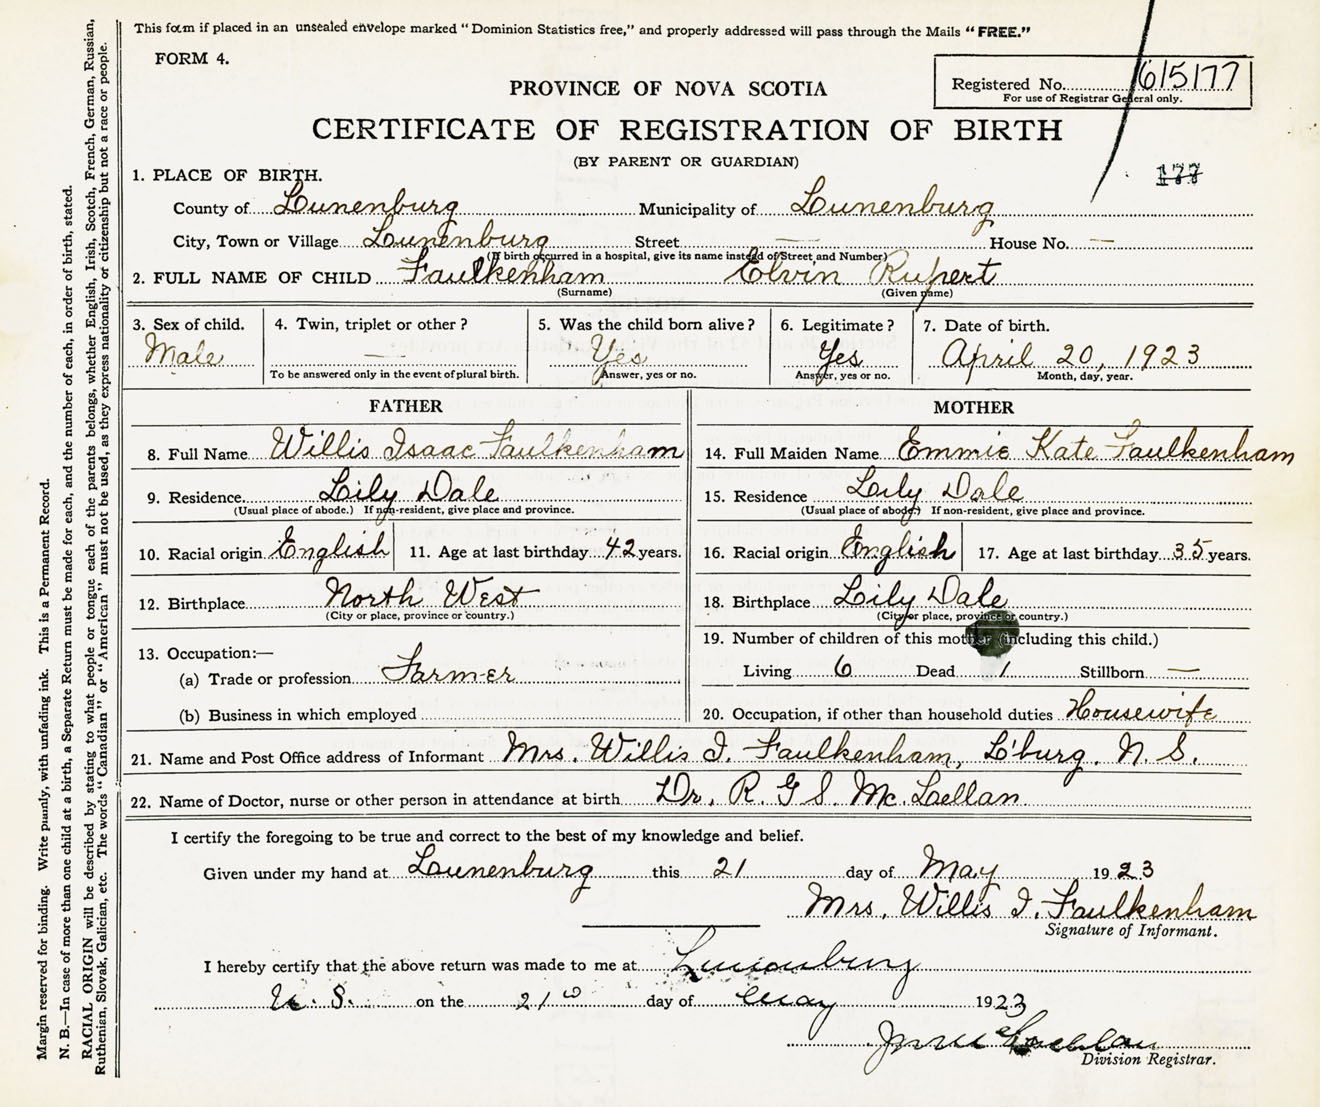 This form if placed in an unsealed envelope marked "Dominion Statistics free," and properly addressed will pass through the Mails "FREE."
FORM 4.
Registered No. 615177
For use of Registrar General only.
PROVINCE OF NOVA SCOTIA
CERTIFICATE OF REGISTRATION OF BIRTH
(BY PARENT OR GUARDIAN)
177
1. PLACE OF BIRTH.
County of Lunenburg Municipality of Lunenburg
City, Town or Village Lunenburg Street — House No. —
(If birth occurred in a hospital, give its name instead of Street and Number)
2. FULL NAME OF CHILD Faulkenham Elvin Rupert
(Surname) (Given name)
3. Sex of child. 4. Twin, triplet or other? 5. Was the child born alive? 6. Legitimate? 7. Date of birth.
Male — Yes Yes April 20, 1923
To be answered only in the event of plural birth. Answer, yes or no. Answer, yes or no. Month, day, year.
FATHER MOTHER
8. Full Name Willis Isaac Faulkenham 14. Full Maiden Name Emmie Kate Faulkenham
9. Residence. Lily Dale 15. Residence Lily Dale
(Usual place of abode.) If non-resident, give place and province. (Usual place of abode) If non-resident, give place and province.
10. Racial origin English 11. Age at last birthday 42 years. 16. Racial origin English 17. Age at last birthday 35 years.
12. Birthplace North West 18. Birthplace Lily Dale
(City or place, province or country.) (City or place, province or country.)
19. Number of children of this mother (including this child.)
13. Occupation:—
(a) Trade or profession Farmer Living 6 Dead 1 Stillborn —
(b) Business in which employed 20. Occupation, if other than household duties Housewife
21. Name and Post Office address of Informant Mrs. Willis I. Faulkenham, L'burg. N. S.
22. Name of Doctor, nurse or other person in attendance at birth Dr. R. G S. Mc. Lellan
I certify the foregoing to be true and correct to the best of my knowledge and belief.
Given under my hand at Lunenburg this 21 day of May 1923
Mrs. Willis I. Faulkenham
Signature of Informant.
I hereby certify that the above return was made to me at Lunenburg
N. S. on the 21 day of May 1923
Division Registrar.
Margin reserved for binding. Write plainly, with unfading ink. This is a Permanent Record.
N. B.—In case of more than one child at a birth, a Separate Return must be made for each, and the number of each, in order of birth, stated.
RACIAL ORIGIN will be described by stating to what people or tongue each of the parents belongs, whether English, Irish, Scotch, French, German, Russian,
Ruthenian, Slovak, Galician, etc. The words "Canadian" or "American" must not be used, as they express nationality or citizenship but not a race or people.